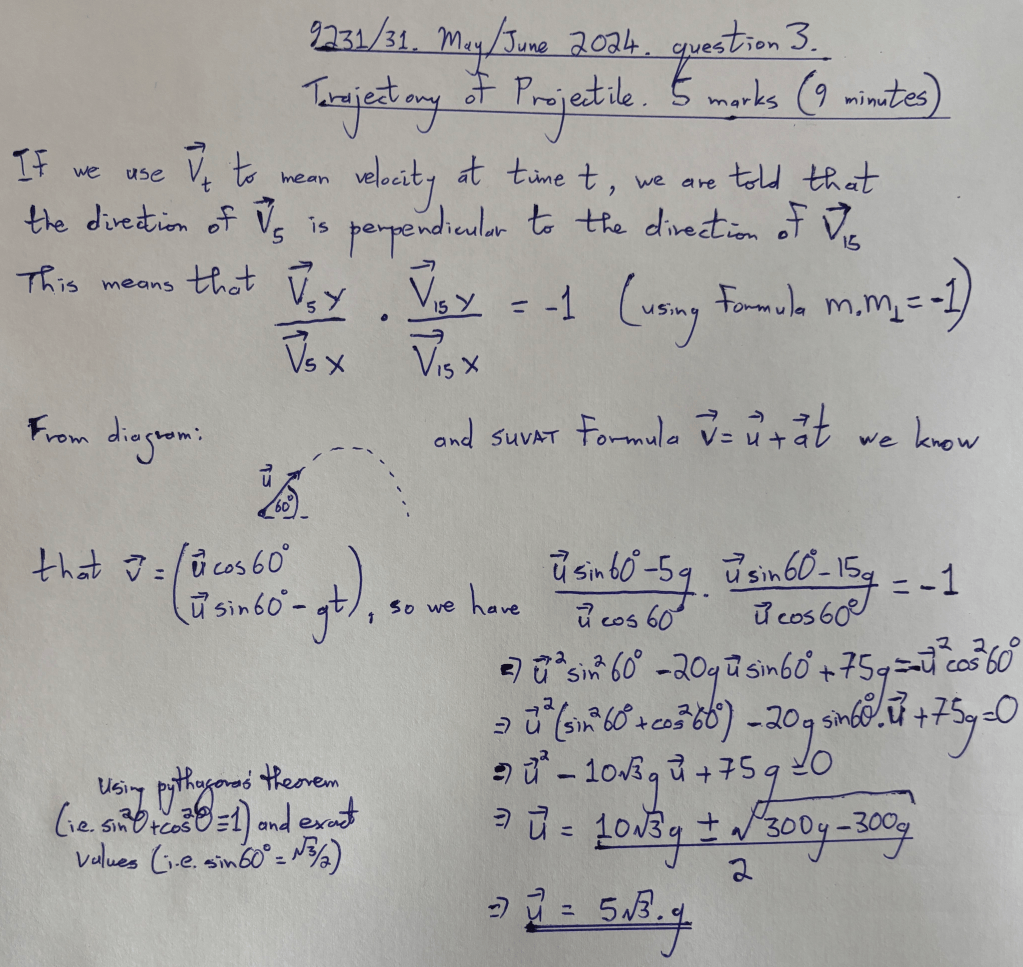 9231/31. May/June 2024. question 3.
Trajectory of Projectile. 5 marks (9 minutes)
If we use V⃗_t to mean velocity at time t, we are told that
the direction of V⃗_5 is perpendicular to the direction of V⃗_15
This means that (V⃗_5 y)/(V⃗_5 x) · (V⃗_15 y)/(V⃗_15 x) = -1 (using formula m.m_⊥ = -1)
From diagram: and SUVAT Formula v⃗ = u⃗ + a⃗t we know
u⃗
60°
that v⃗ = (u⃗ cos60° / u⃗ sin60° - gt), so we have (u⃗ sin60° - 5g)/(u⃗ cos60°) . (u⃗ sin60° - 15g)/(u⃗ cos60°) = -1
⇒ u⃗² sin²60° - 20g u⃗ sin60° + 75g = -u⃗² cos²60°
⇒ u⃗² (sin²60° + cos²60°) - 20g sin60°. u⃗ + 75g = 0
⇒ u⃗² - 10√3 g u⃗ + 75g = 0
⇒ u⃗ = (10√3 g ± √(300g - 300g))/2
⇒ u⃗ = 5√3 . g
Using pythagoras' theorem
(i.e. sin²θ + cos²θ ≡ 1) and exact
values (i.e. sin60° = √3/2)